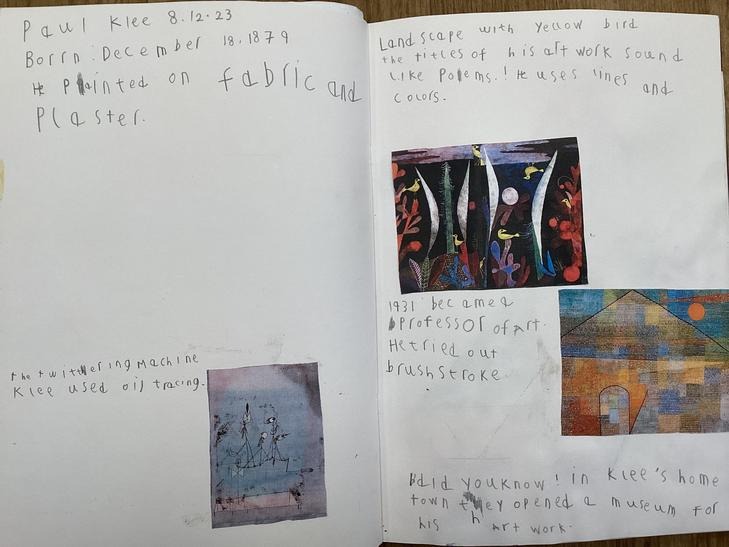 Paul Klee 8.12.23
Borrn: December 18, 1879
He Painted on fabric and
Plaster.
the twittering Machine
Klee used oil tracing.
Landscape with yellow bird
the titles of his art work sound
like Poems.! He uses lines and
colors.
1931 became a
professor of art.
He tried out
brushstroke.
did you know! in Klee's home
town they opened a museum for
his art work.